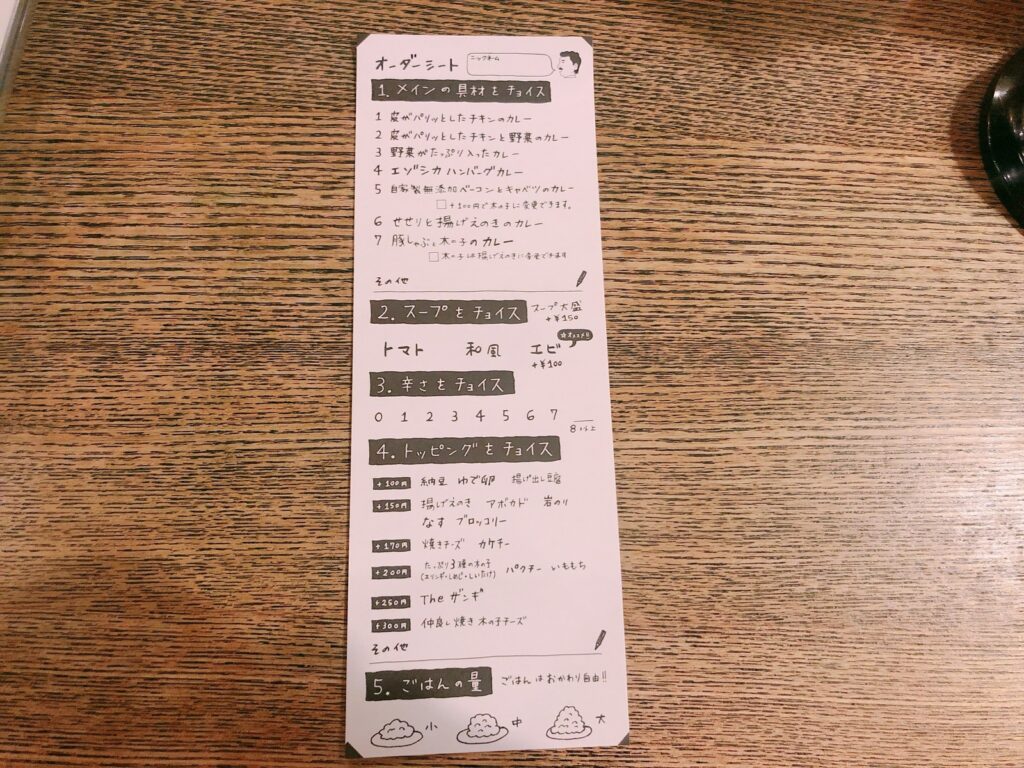 オーダーシート
ニックネーム
1. メインの具材をチョイス
1 皮がパリッとしたチキンのカレー
2 皮がパリッとしたチキンと野菜のカレー
3 野菜がたっぷり入ったカレー
4 エゾシカハンバーグカレー
5 自家製無添加ベーコンとキャベツのカレー
□ +100円で木の子に変更できます。
6 せせりと揚げえのきのカレー
7 豚しゃぶと木の子のカレー
□ 木の子は揚げえのきに変更できます
その他
2. スープをチョイス スープ大盛
+¥150
★オススメ!!
トマト 和風 エビ
+¥100
3. 辛さをチョイス
0 1 2 3 4 5 6 7
8以上
4. トッピングをチョイス
+100円 納豆 ゆで卵 揚げ出し豆腐
+150円 揚げえのき アボカド 岩のり
なす ブロッコリー
+170円 焼きチーズ カケチー
+200円 たっぷり3種の木の子 パクチー いももち
(エリンギ・しめじ・しいたけ)
+250円 The ザンギ
+300円 仲良し焼き木の子チーズ
その他
5. ごはんの量 ごはんはおかわり自由!!
小 中 大